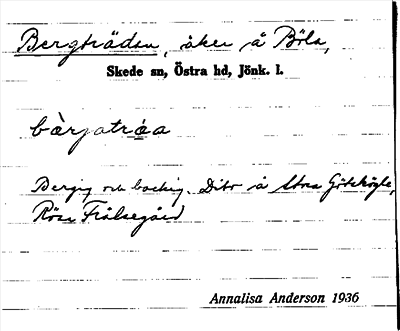 Bergträdan, åker å Böla,
Skede sn, Östra hd, Jönk. l.
bàrjatràa
Bergig och backig. Dito å Stora
Röse Frälsegård
Annalisa Anderson 1936